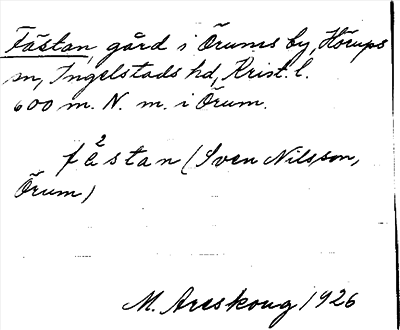 Fästan, gård i Örums by, Hörups
sn, Ingelstads hd, Krist. l.
600 m. N. m. i Örum.
2
fästan (Sven Nilsson,
Örum)
M. Areskoug 1926